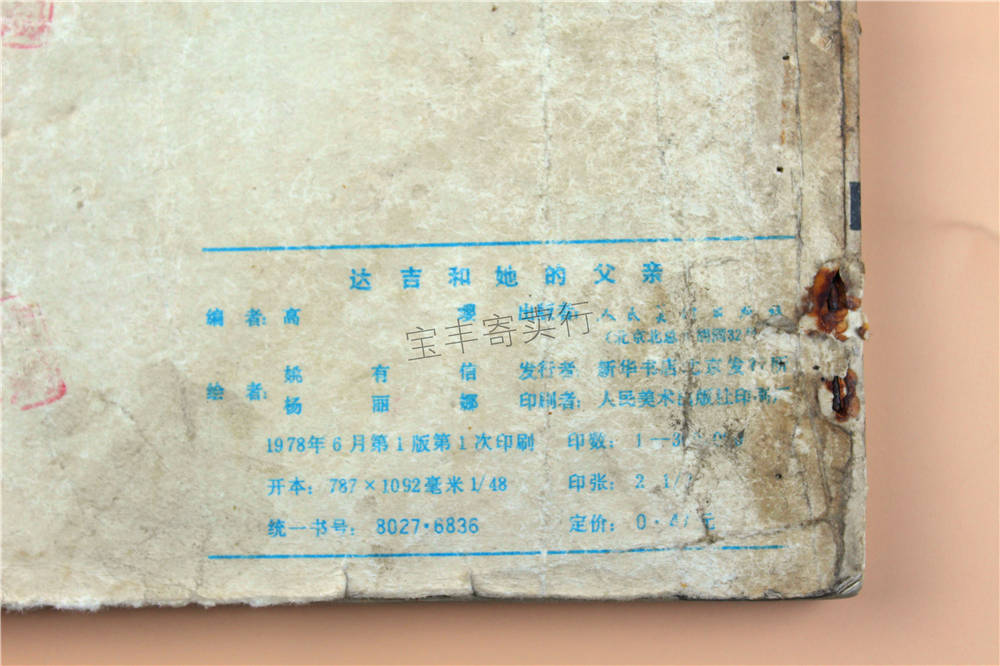 达吉和她的父亲
编者：高缨 出版者：人民美术出版社
绘者：姚有信 发行者：新华书店北京发行所
杨丽娜 印刷者：人民美术出版社印刷厂
1978年6月第1版第1次印刷 印数：1—
开本：787×1092毫米1/48 印张：2
统一书号：8027·6836 定价：0·4 元
宝丰寄卖行